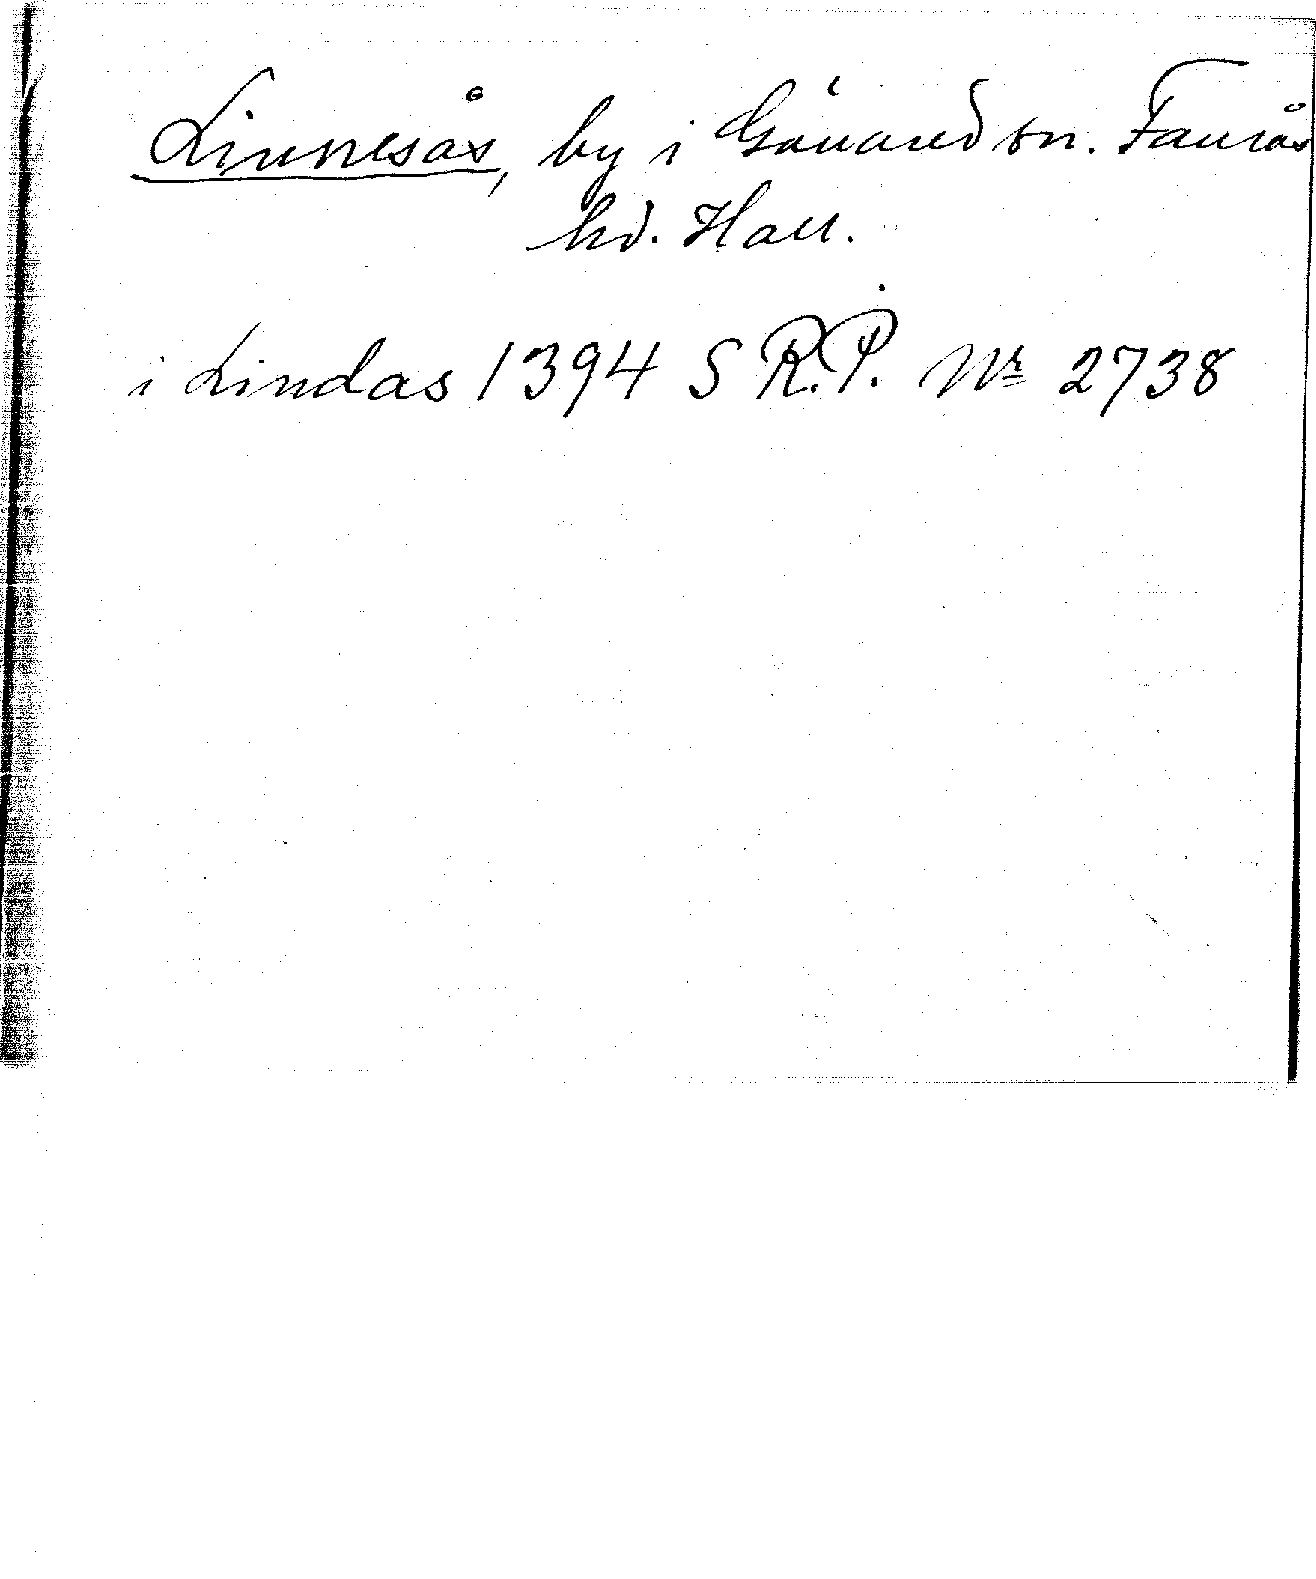 Linnesås, by i Gunnared sn. Faurås
hd. Hall.
i Lindas 1394 S R.P. Nr 2738